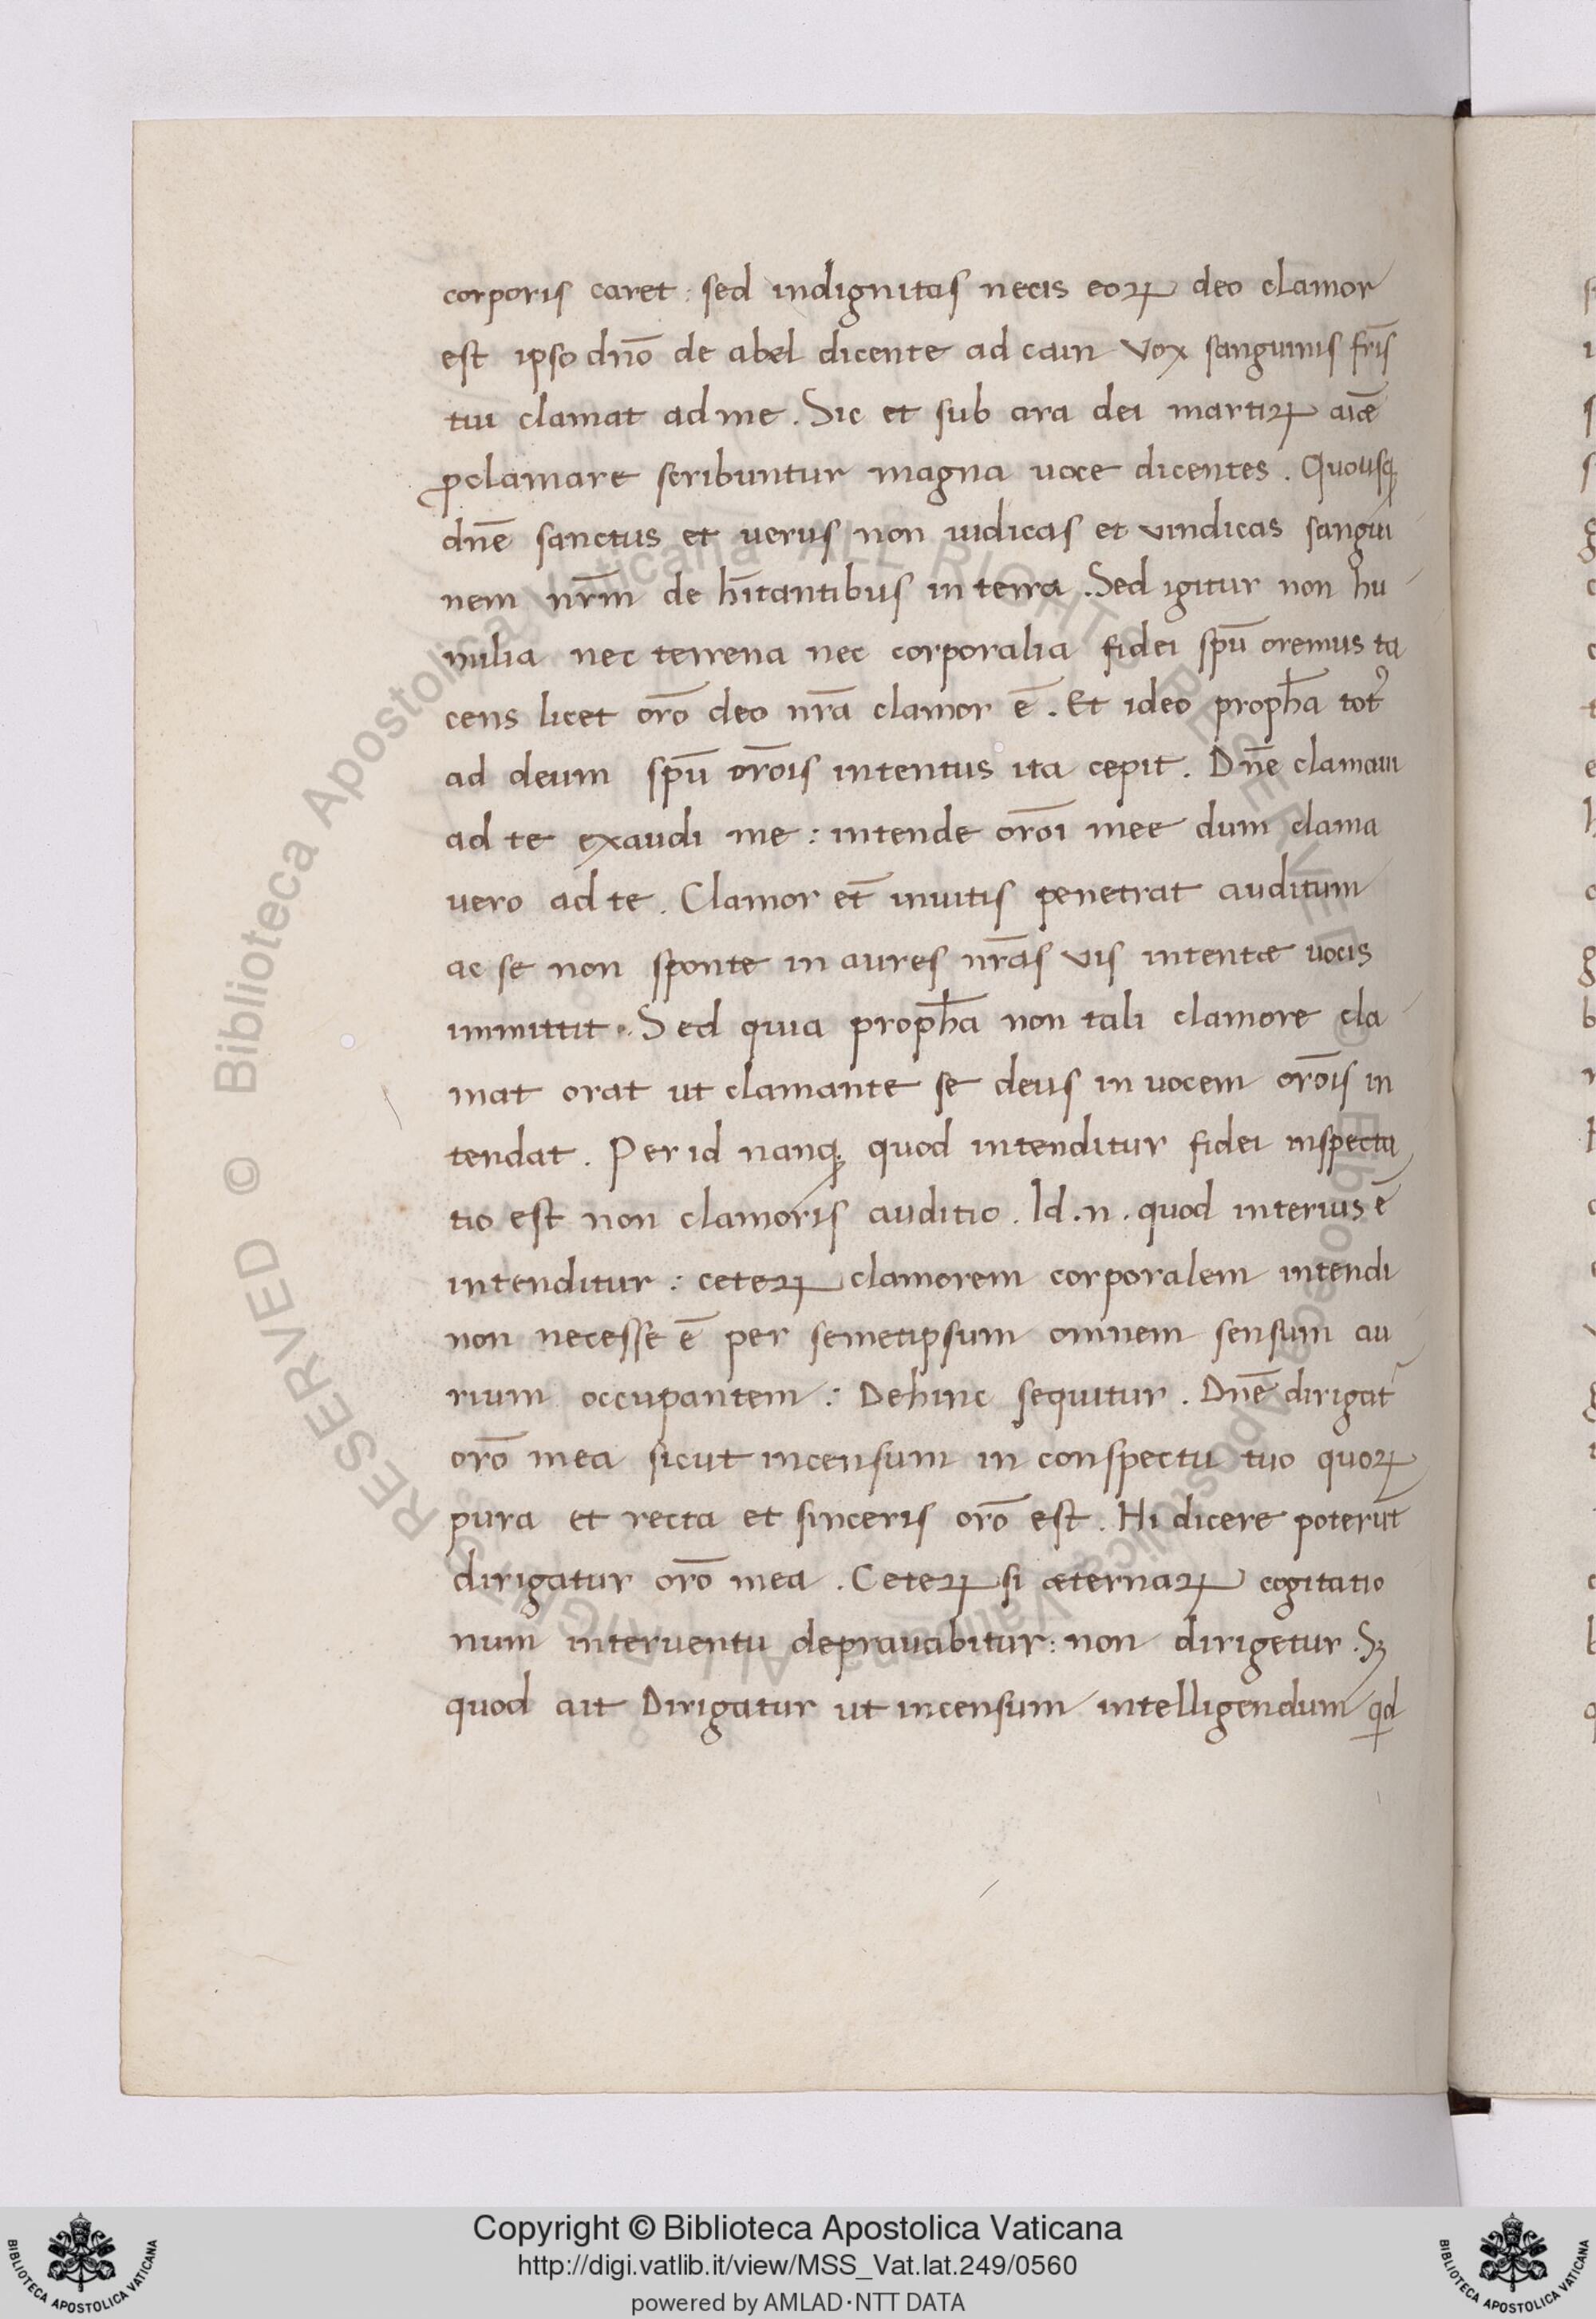 corporis caret: sed indignitas necis eoꝝ deo clamor
est ipso dnō de abel dicente ad cain vox sanguinis fris̄
tui clamat ad me. Sic et sub ara dei martiꝝ aīæ
ꝓclamare scribuntur magna uoce dicentes. Quousqꝫ
dnē sanctus et uerus non iudicas et vindicas sangui
nem nrm̄ de hītantibus in terra. Sed igitur non hu
milia nec terrena nec corporalia fidei spū oremus ta
cens licet orō deo nrā clamor ē. Et ideo propħa totꝰ
ad deum spū orōis intentus ita cepit. Dnē clamaui
ad te exaudi me: intende orōi mee dum clama
vero ad te. Clamor et̄ inuitis penetrat auditum
ac se non sponte in aures nrās vis intentæ uocis
immittit. Sed quia propħa non tali clamore cla
mat orat ut clamante se deus in uocem orōis in
tendat. Per id nanqꝫ quod intenditur fidei inspecta
tio est non clamoris auditio. Id.n. quod interius ē
intenditur: ceteꝝ clamorem corporalem intendi
non necesse ē per semetipsum omnem sensum au
rium occupantem: Dehinc sequitur. Dnē dirigat᷑
orō mea sicut incensum in conspectu tuo quoꝝ
pura et recta et sinceris orō est. Hi dicere poterūt
dirigatur orō mea. Ceteꝝ si æternaꝝ cogitatio
num interuentu deprauabitur: non dirigetur. Sꝫ
quod ait Dirigatur ut incensum intelligendum qd
Biblioteca Apostolica Vaticana ALL RIGHTS RESERVED ©
Copyright © Biblioteca Apostolica Vaticana
http://digi.vatlib.it/view/MSS_Vat.lat.249/0560
powered by AMLAD·NTT DATA
BIBLIOTECA APOSTOLICA VATICANA
BIBLIOTECA APOSTOLICA VATICANA